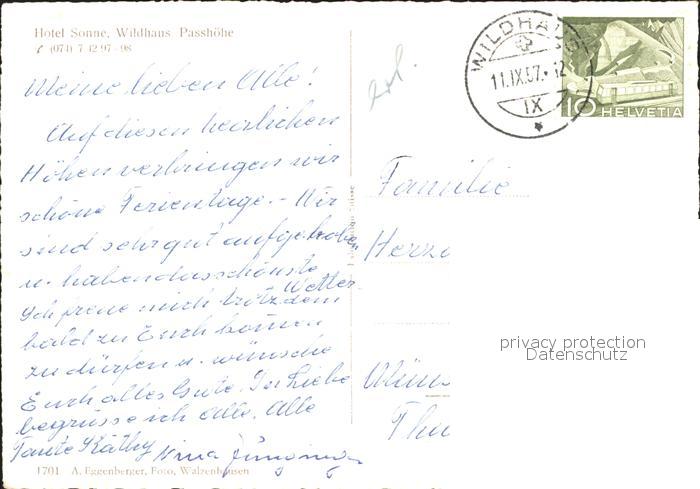 Hotel Sonne, Wildhaus Passhöhe
(074) 7 42 97 - 98
Meine lieben Alle!
Auf diesen herrlichen
Höhen verbringen wir
schöne Ferientage. - Wir
sind sehr gut aufgehoben
u. haben das schönste
Wetter
Ich freue mich trotzdem
bald zu Euch kommen
zu dürfen u. wünsche
Euch alles Gute. In Liebe
begrüsse ich Alle. Alle
Tante Käthy
Nina
1701 A. Eggenberger, Foto, Walzenhausen
WILDHAUS
11.IX.57.-12
IX
10 HELVETIA
Familie
Herzo
privacy protection
Datenschutz